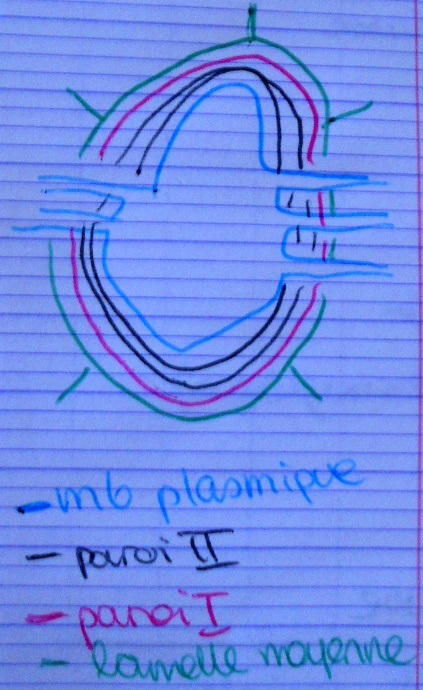 - mb plasmique
- paroi II
- paroi I
- lamelle moyenne